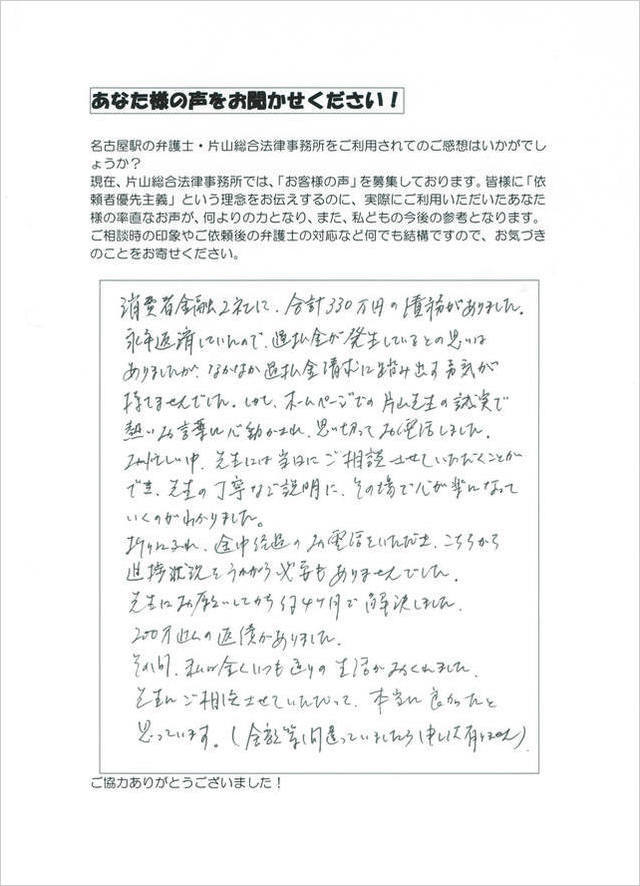 あなた様の声をお聞かせください！
名古屋駅の弁護士・片山総合法律事務所をご利用されてのご感想はいかがでし
ょうか？
現在、片山総合法律事務所では、「お客様の声」を募集しております。皆様に「依
頼者優先主義」という理念をお伝えするのに、実際にご利用いただいたあなた
様の率直なお声が、何よりの力となり、また、私どもの今後の参考となります。
ご相談時の印象やご依頼後の弁護士の対応など何でも結構ですので、お気づき
のことをお寄せください。
消費者金融2社に、合計330万円の債務がありました。
永年返済していたので、過払金が発生しているとの思いは
ありましたが、なかなか過払金請求に踏み出す勇気が
持てませんでした。しかし、ホームページでの片山先生の誠実で
熱いお言葉に心動かされ、思い切ってお電話しました。
お忙しい中、先生には当日にご相談させていただくことが
でき、先生の丁寧なご説明に、その場で心が楽になって
いくのがわかりました。
折りにふれ、途中経過のお電話をいただき、こちらから
進捗状況をうかがう必要もありませんでした。
先生にお願いしてから約4ヶ月で解決しました。
200万以上の返還がありました。
その間、私は全くいつも通りの生活がおくれました。
先生にご相談させていただいて、本当に良かったと
思っています。(金額等間違っていましたら申し訳有りません)
ご協力ありがとうございました！